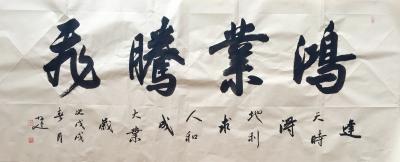 鴻業騰飛
天時得地利求人和成大業歲次戊戌春月